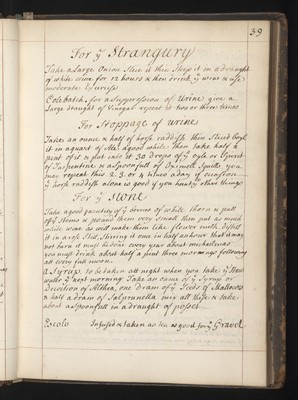 39
For ye Strangury
Take a Large Onion Slice it then Steep it in a draught
of white wine for 12 hours & then drink ye wine & use
moderate Exercise
Colebatch for a Suppression of Urine give a
Large draught of Vinegar repeat it two or three times
For Stoppage of urine
Take an ounce & half of horse raddish thin Sliced boyl
it in a quart of Ale a good while then take half a
pint of it & put into it 30 drops of ye oyle or Spirit
of Turpentine & a Spoonfull of Sperment you
may repeat this 2. 3. or 4 times a day if occasion
ye horse raddish alone is good if you have no other things
For ye Stone
Take a good quantity of ye berries of white thorn & pull
off ye Stems & pound them very Small then put as much
white wine as will make them like flower milk distill
it in a cold Still, Stirring it once in half an hour that it may
not burn it must be done every year about michaelmas
you must drink about half a pint three mornings following
at every full moon.
A Syrup to be taken att night when you take ye Stone
water ye next morning Take an ounce of ye Syrup or
Decoction of Althea, one dram of ye Seeds of Mallows
& half a dram of Salprunella mix all these & take
about a spoonfull in a draught of posset
Infused & taken as tea is good for ye Gravel